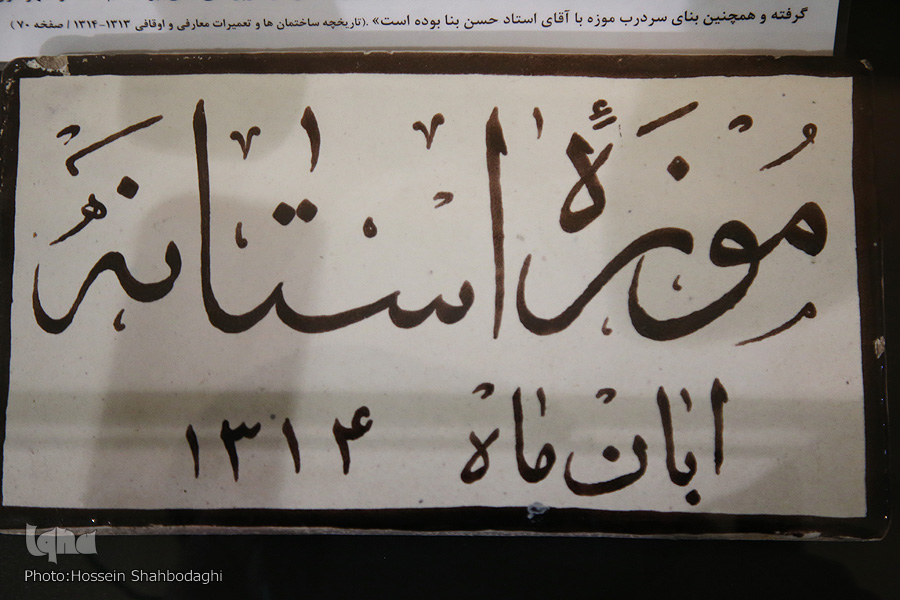 گرفته و همچنین بنای سردرب موزه با آقای استاد حسن بنا بوده است» .(تاریخچه ساختمان ها و تعمیرات معارفی و اوقافی ۱۳۱۳-۱۳۱۴ / صفحه ۷۰)
موزهٔ استانه
ابان ماه ۱۳۱۴
iqna
Photo:Hossein Shahbodaghi